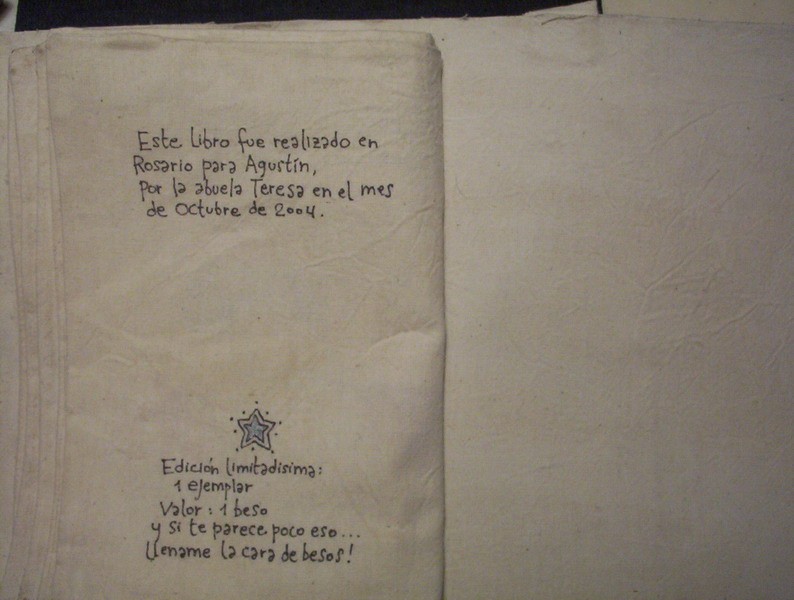 Este libro fue realizado en
Rosario para Agustín,
por la abuela Teresa en el mes
de Octubre de 2004.
Edición limitadisima:
1 ejemplar
Valor: 1 beso
y si te parece poco eso...
llename la cara de besos!